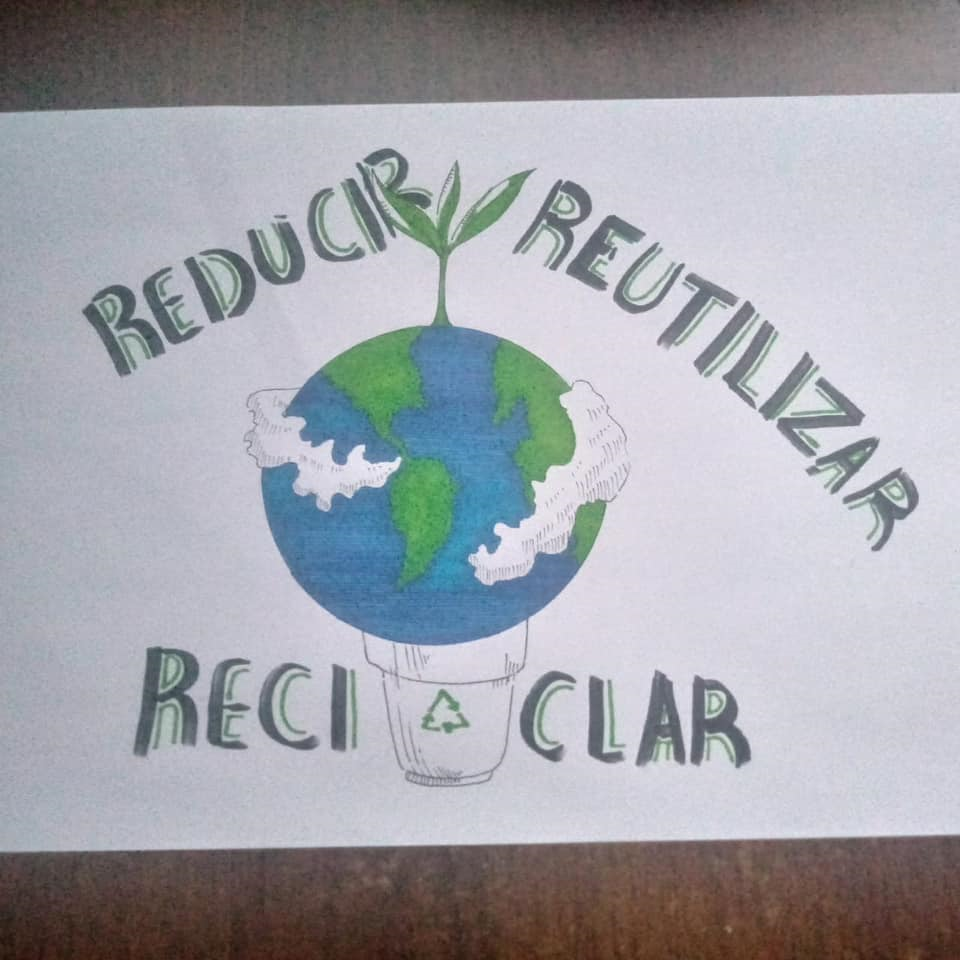 REDUCIR
REUTILIZAR
RECI CLAR